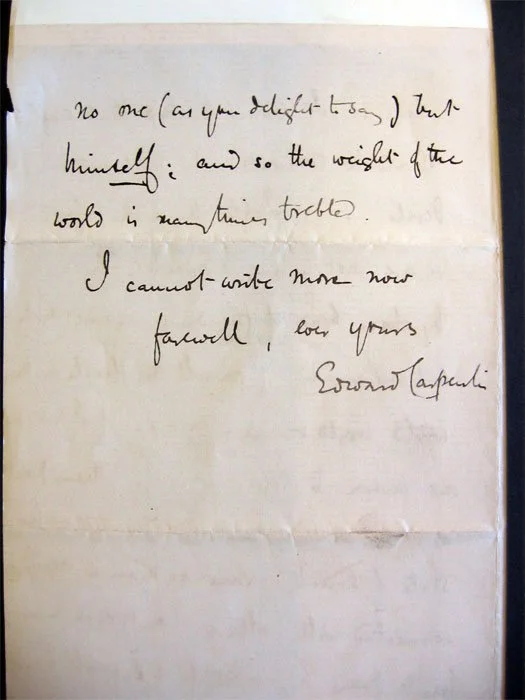 no one (as you delight to say) but
himself; and so the weight of the
world is many times trebled.
I cannot write more now
farewell, ever yours
Edward Carpenter